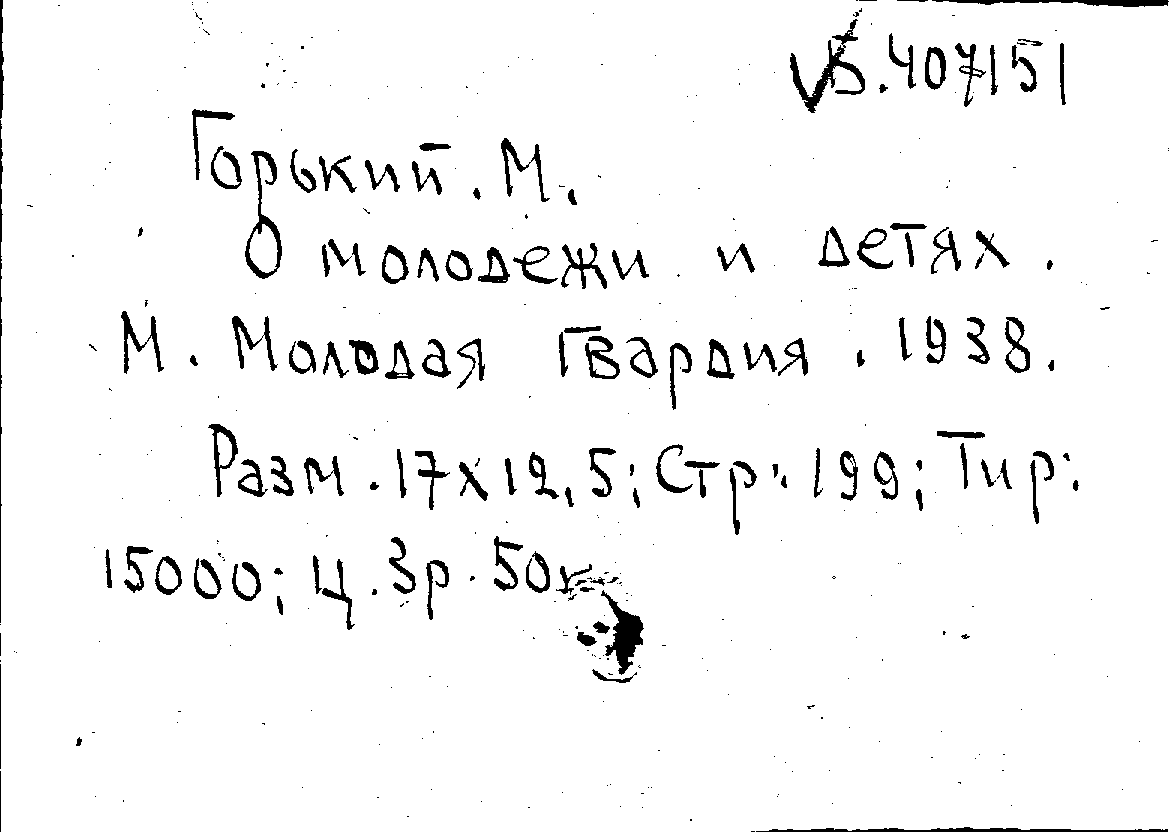 Б.407151
Горький. М.
О молодежи и детях.
М. Молодая Гвардия. 1938.
Разм. 17х12,5; Стр. 199; Тир:
15000; Ц. 3р. 50к